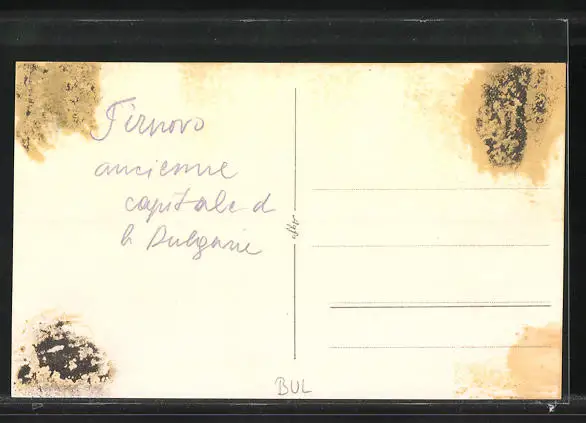 Tirnovo
ancienne
capitale d
la Bulgarie
BUL